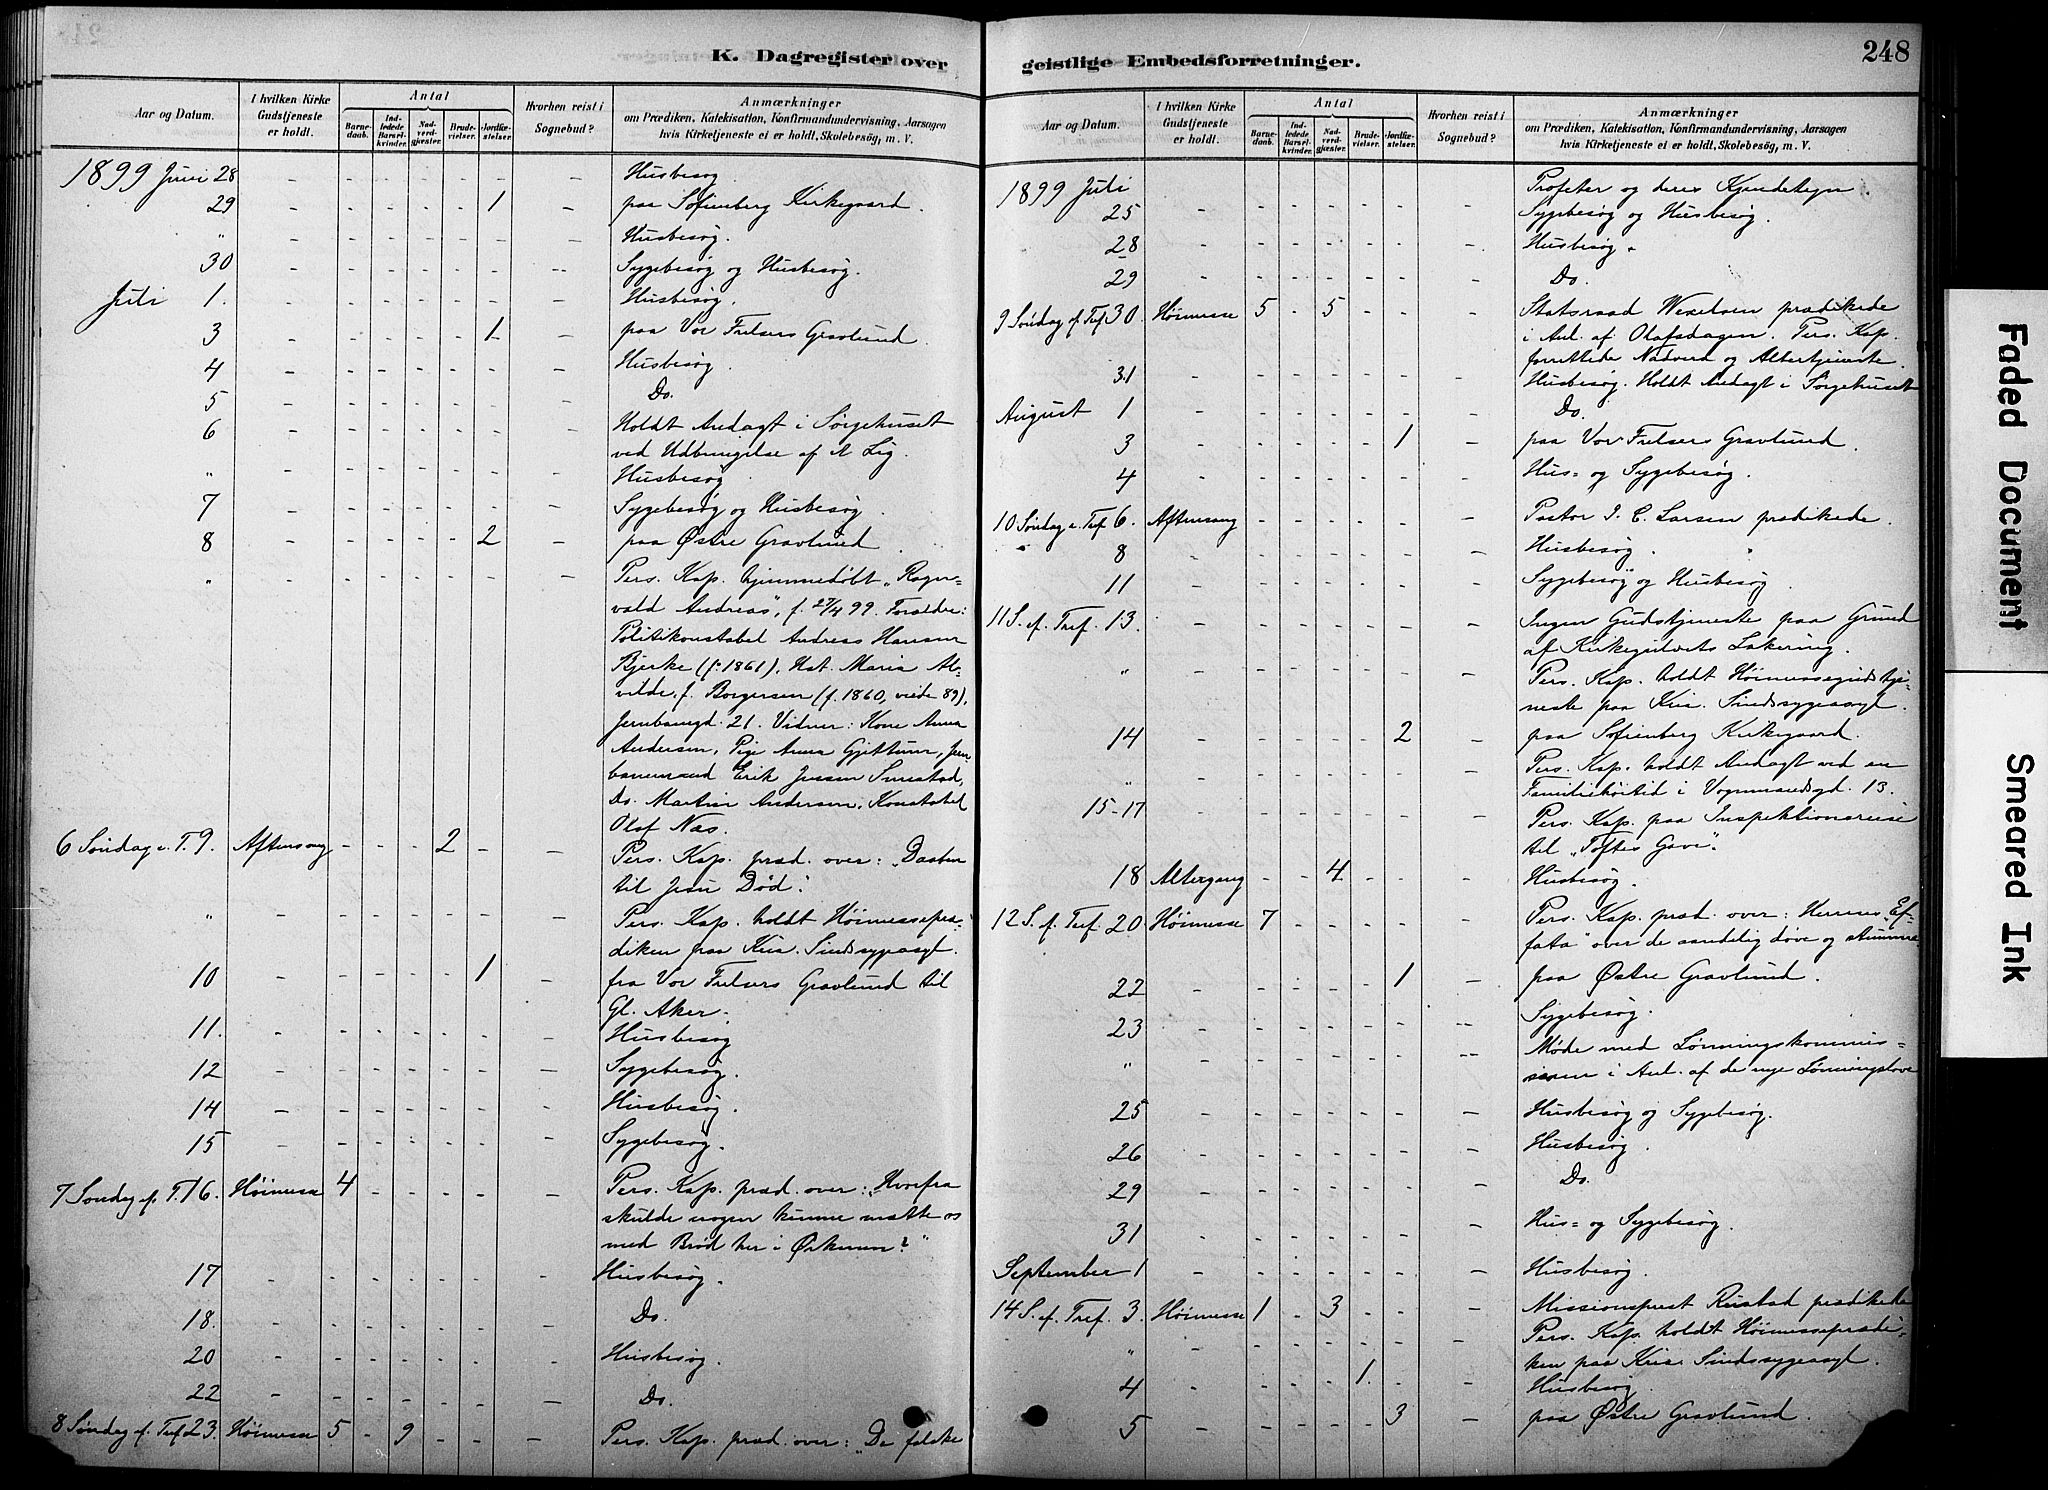 K. Dagregister over
Aar og Datum.
I hvilken Kirke Gudstjeneste er holdt.
Antal
Barnedaab.
Indledede Barselkvinder.
Nadverdgjester.
Brudevielser.
Jordfæstelser.
Hvorhen reist i Sognebud?
Anmærkninger
om Prædiken, Katekisation, Konfirmandundervisning, Aarsagen
hvis Kirketjeneste ei er holdt, Skolebesøg, m. V.
1899 Juni 28 - - - - - - - Husbesøg.
29 - - - - - 1 - paa Sofienberg Kirkegaard.
" - - - - - - - Husbesøg.
30 - - - - - - - Sygebesøg og Husbesøg.
Juli 1. - - - - - - - Husbesøg.
3 - - - - - 1 - paa Vor Frelsers Gravlund.
4 - - - - - - - Husbesøg.
5 - - - - - - - Do.
6 - - - - - - - Holdt Andagt i Sørgehuset
ved Udbringelse af et Lig.
" - - - - - - - Husbesøg
7 - - - - - - - Sygebesøg og Husbesøg.
8 - - - - - 2 - paa Østre Gravlund.
" - - - - - - - Pers. Kap. hjemmedøbt „Ragn-
vald Andreas", f. 27/4 99. Forældre:
Politikonstabel Andreas Hansen
Bjerke (f. 1861), Hst. Maria Al-
vilde, f. Borgersen (f. 1860, viede 89),
Jernbangd. 21. Vidner: Kone Anna
Andersen, Pige Anna Gjettum, Jern-
banemand Erik Jensen Smestad,
Do. Martin Andersen, Konstabel
Olaf Næs.
6 Søndag e. T. 9. Aftensang - - - 2 - - Pers. Kap. præd. over: „Daaben
til Jesu Død".
" - - - - - - - Pers. Kap. holdt Høimessepræ-
diken paa Kria. Sindssygeasyl.
10 - - - - - 1 - fra Vor Frelsers Gravlund til
Gl. Aker.
11. - - - - - - - Husbesøg
12 - - - - - - - Sygebesøg.
14 - - - - - - - Husbesøg.
15 - - - - - - - Sygebesøg.
7 Søndag f. T. 16. Høimesse 4 - - - - - Pers. Kap. præd. over: „Hvorfra
skulde nogen kunne mætte os
med Brød her i Ørkenen?"
17 - - - - - - - Husbesøg.
18. - - - - - - - Do.
20 - - - - - - - Husbesøg.
22 - - - - - - - Do.
8 Søndag f. Tref. 23. Høimesse 5 - 9 - - - Pers. Kap. præd. over: „De falske
geistlige Embedsforretninger.
248
Aar og Datum.
I hvilken Kirke Gudstjeneste er holdt.
Antal
Barnedaab.
Indledede Barselkvinder.
Nadverdgjester.
Brudevielser.
Jordfæstelser.
Hvorhen reist i Sognebud?
Anmærkninger
om Prædiken, Katekisation, Konfirmandundervisning, Aarsagen
hvis Kirketjeneste ei er holdt, Skolebesøg, m. V.
1899 Juli Profeter og deres Kjendetegn
25 - - - - - - - Sygebesøg og Husbesøg.
28 - - - - - - - Husbesøg.
29 - - - - - - - Do.
9 Søndag f. Tref. 30. Høimesse 5 - 5 - - - Statsraad Wexelsen prædikede
i Anl. af Olafsdagen. Pers. Kap.
forrettede Nadverd og Altertjeneste.
31 - - - - - - - Husbesøg. Holdt Andagt i Sørgehuset
August 1 - - - - - - - Do.
3 - - - - - 1 - paa Vor Frelsers Gravlund.
4 - - - - - - - Hus= og Sygebesøg.
10 Søndag e. Tref. 6. Aftensang - - - - - - Pastor I. C. Larsen prædikede.
8 - - - - - - - Husbesøg.
11 - - - - - - - Sygebesøg og Husbesøg.
11 S. f. Tref. 13. - - - - - - - Ingen Gudstjeneste paa Grund
af Kirkegulvets Lakering.
" - - - - - - - Pers. Kap. holdt Høimessegudstje-
neste paa Kria. Sindssygeasyl.
14 - - - - - 2 - paa Sofienberg Kirkegaard.
" - - - - - - - Pers. Kap. holdt Andagt ved en
Familiehøitid i Vognmandsgd. 13.
15-17 - - - - - - - Pers. Kap. paa Inspektionsreise
til „Toftes Gave".
18 Altergang - - 4 - - - Husbesøg.
12 S. f. Tref. 20 Høimesse 7 - - - - - Pers. Kap. præd. over: Herrens „Ef-
fata" over de aandelig døve og stumme.
22 - - - - - 1 - paa Østre Gravlund.
23 - - - - - - - Sygebesøg.
" - - - - - - - Møde med Lønningskommis-
sionen i Anl. af de nye Lønningslove
25 - - - - - - - Husbesøg og Sygebesøg.
26 - - - - - - - Husbesøg.
29 - - - - - - - Do.
31 - - - - - - - Hus= og Sygebesøg.
September 1 - - - - - - - Husbesøg.
14 S. f. Tref. 3. Høimesse 1 - 3 - - - Missionsprest Rustad prædikede
" - - - - - - - Pers. Kap. holdt Høimesseprædi-
ken paa Kria. Sindssygeasyl.
4 - - - - 1. - - Husbesøg.
5 - - - - - 3 - paa Østre Gravlund.
Faded Document
Smeared Ink